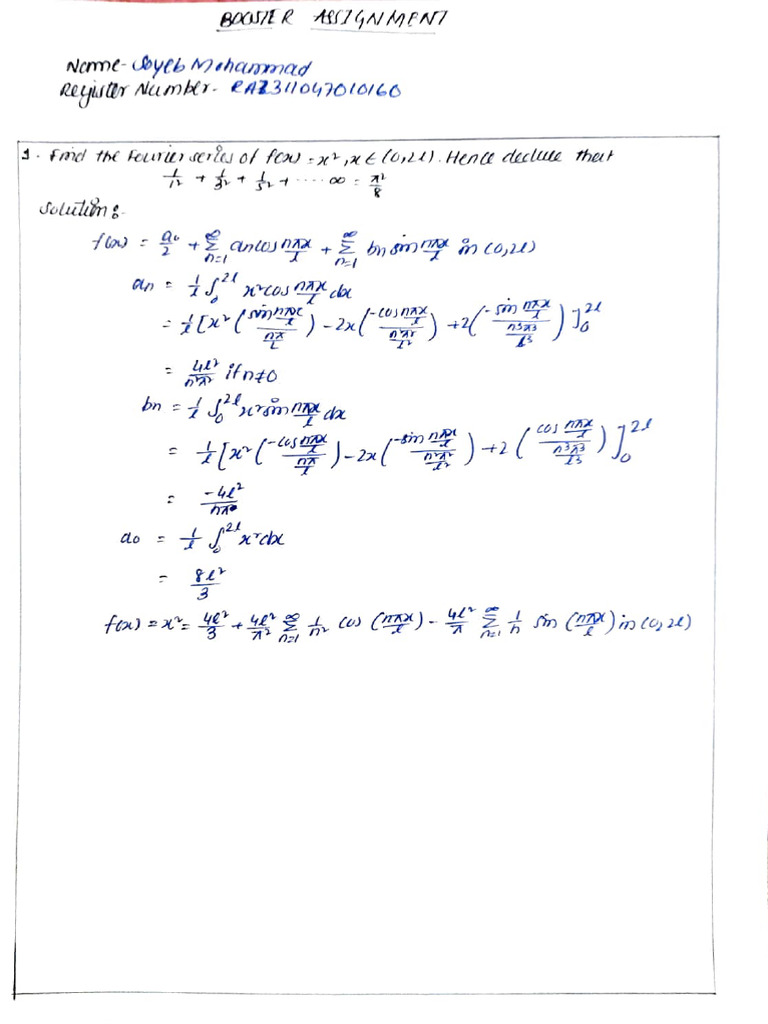 BOOSTER ASSIGNMENT
Name- Soyeb Mohammad
Register Number- RA2311047010160
1. Find the Fourier series of f(x) = x², x ∈ (0, 2l). Hence deduce that
1/1² + 1/3² + 1/5² + ..... ∞ = π²/8
Solution:-
f(x) = a₀/2 + ∞Σn=1 an cos nπx/l + ∞Σn=1 bn sin nπx/l in (0, 2l)
an = 1/l ∫₀^2l x² cos nπx/l dx
= 1/l [x² (sin nπx/l / nπ/l) - 2x (-cos nπx/l / n²π²/l²) + 2 (-sin nπx/l / n³π³/l³)]₀^2l
= 4l²/n²π² if n≠0
bn = 1/l ∫₀^2l x² sin nπx/l dx
= 1/l [x² (-cos nπx/l / nπ/l) - 2x (-sin nπx/l / n²π²/l²) + 2 (cos nπx/l / n³π³/l³)]₀^2l
= -4l²/nπ
a₀ = 1/l ∫₀^2l x² dx
= 8l²/3
f(x) = x² = 4l²/3 + 4l²/π² ∞Σn=1 1/n² cos (nπx/l) - 4l²/π ∞Σn=1 1/n sin (nπx/l) in (0, 2l)